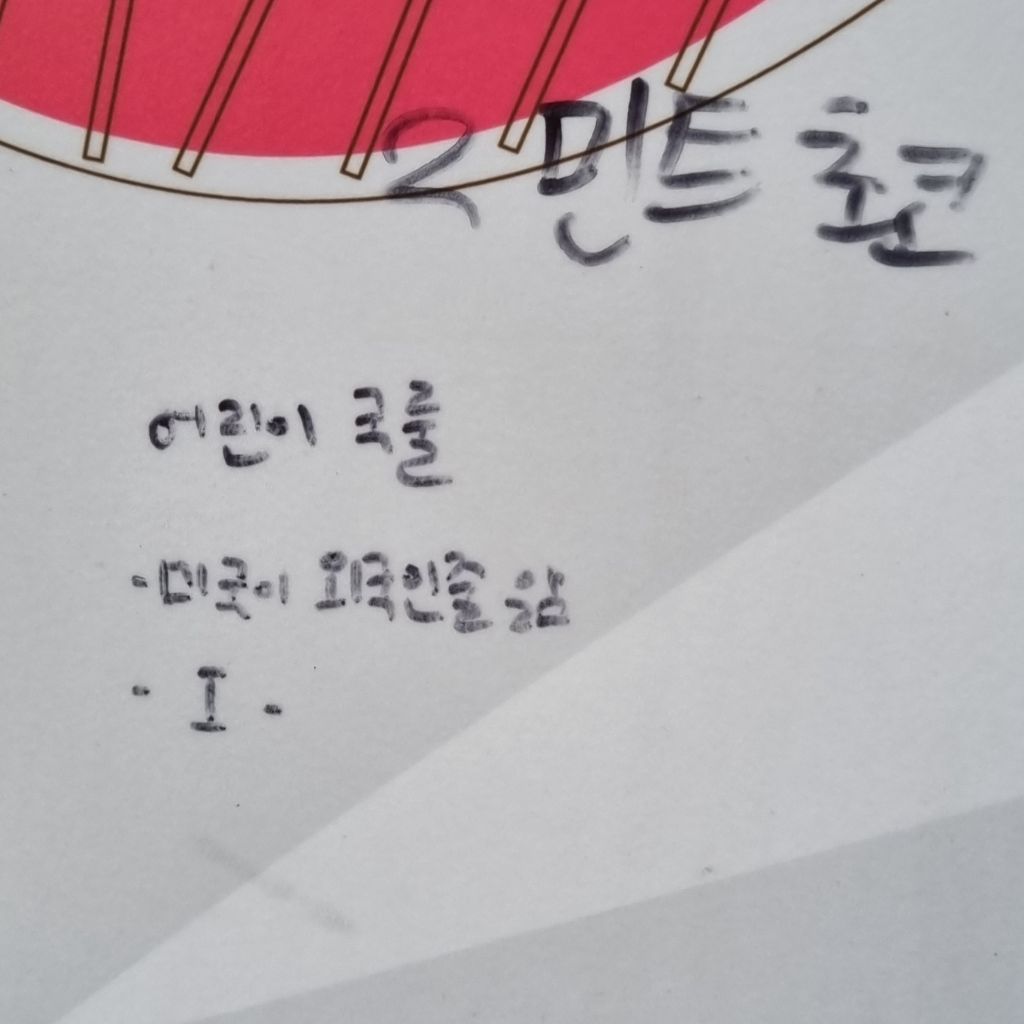 2 민트 초코
어린이 국룰
·미국이 외국인줄 앎
· I ·